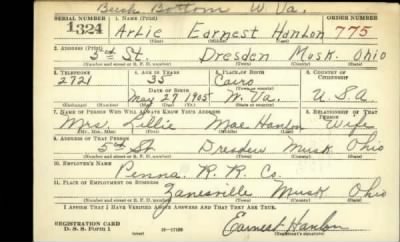 Bush Bottom W. Va.
SERIAL NUMBER 1. NAME (Print) ORDER NUMBER
1324 Arlie Earnest Hanlon 775
2. ADDRESS (Print)
5th St. Dresden Musk. Ohio
3. TELEPHONE 4. AGE IN YEARS 5. PLACE OF BIRTH 6. COUNTRY OF CITIZENSHIP
2721 35 Cairo
DATE OF BIRTH
May 27 1905 W. Va. U.S.A
7. NAME OF PERSON WHO WILL ALWAYS KNOW YOUR ADDRESS 8. RELATIONSHIP OF THAT PERSON
Mrs. Lillie Mae Hanlon Wife
(Mr., Mrs., Miss) (First) (Middle) (Last)
9. ADDRESS OF THAT PERSON
5th St Dresden Musk Ohio
(Number and street or R. F. D. number) (Town) (County) (State)
10. EMPLOYER'S NAME
Penna. R. R. Co.
11. PLACE OF EMPLOYMENT OR BUSINESS
Zanesville Musk Ohio
(Number and street or R. F. D. number) (Town) (County) (State)
I AFFIRM THAT I HAVE VERIFIED ABOVE ANSWERS AND THAT THEY ARE TRUE.
REGISTRATION CARD
D. S. S. Form 1 (over) Earnest Hanlon
(Registrant's signature)